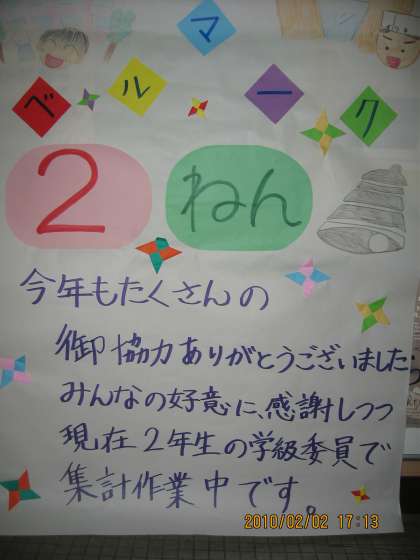 ベルマーク
2ねん
今年もたくさんの
御協力ありがとうございました
みんなの好意に、感謝しつつ
現在2年生の学級委員で
集計作業中です。
2010/02/02 17:13